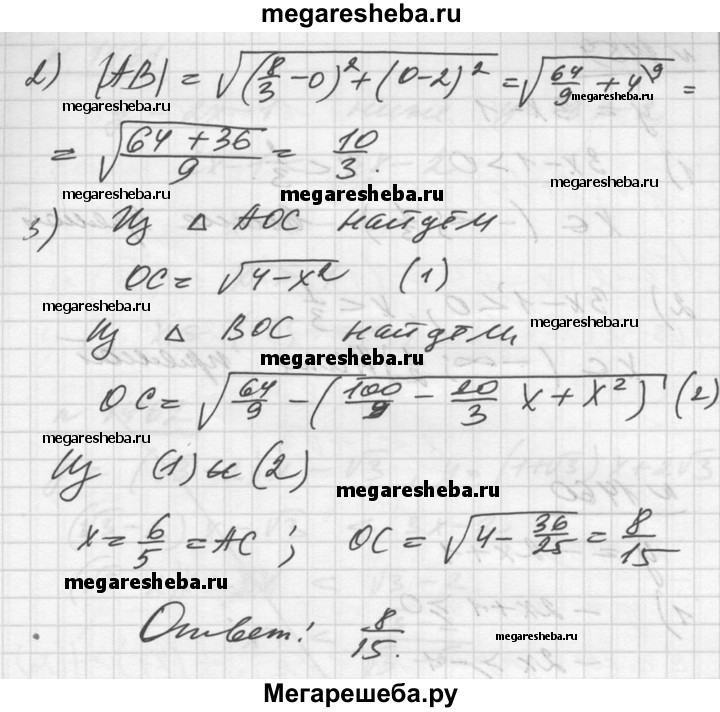 megaresheba.ru
2) |AB| = √((8/3 − 0)² + (0−2)²) = √(64/9 + 4\9) =
megaresheba.ru megaresheba.ru
= √((64+36)/9) = 10/3.
megaresheba.ru megaresheba.ru megaresheba.ru
3) Из Δ AOC найдём
OC = √(4−x²) (1)
megaresheba.ru megaresheba.ru
Из Δ BOC найдём
megaresheba.ru
OC = √(64/9 − (100/9 − 20/3 x + x²)) (2)
megaresheba.ru
Из (1) и (2)
megaresheba.ru
x = 6/5 = AC ; OC = √(4 − 36/25) = 8/15
megaresheba.ru
Ответ: 8/15.
megaresheba.ru
Мегарешеба.ру